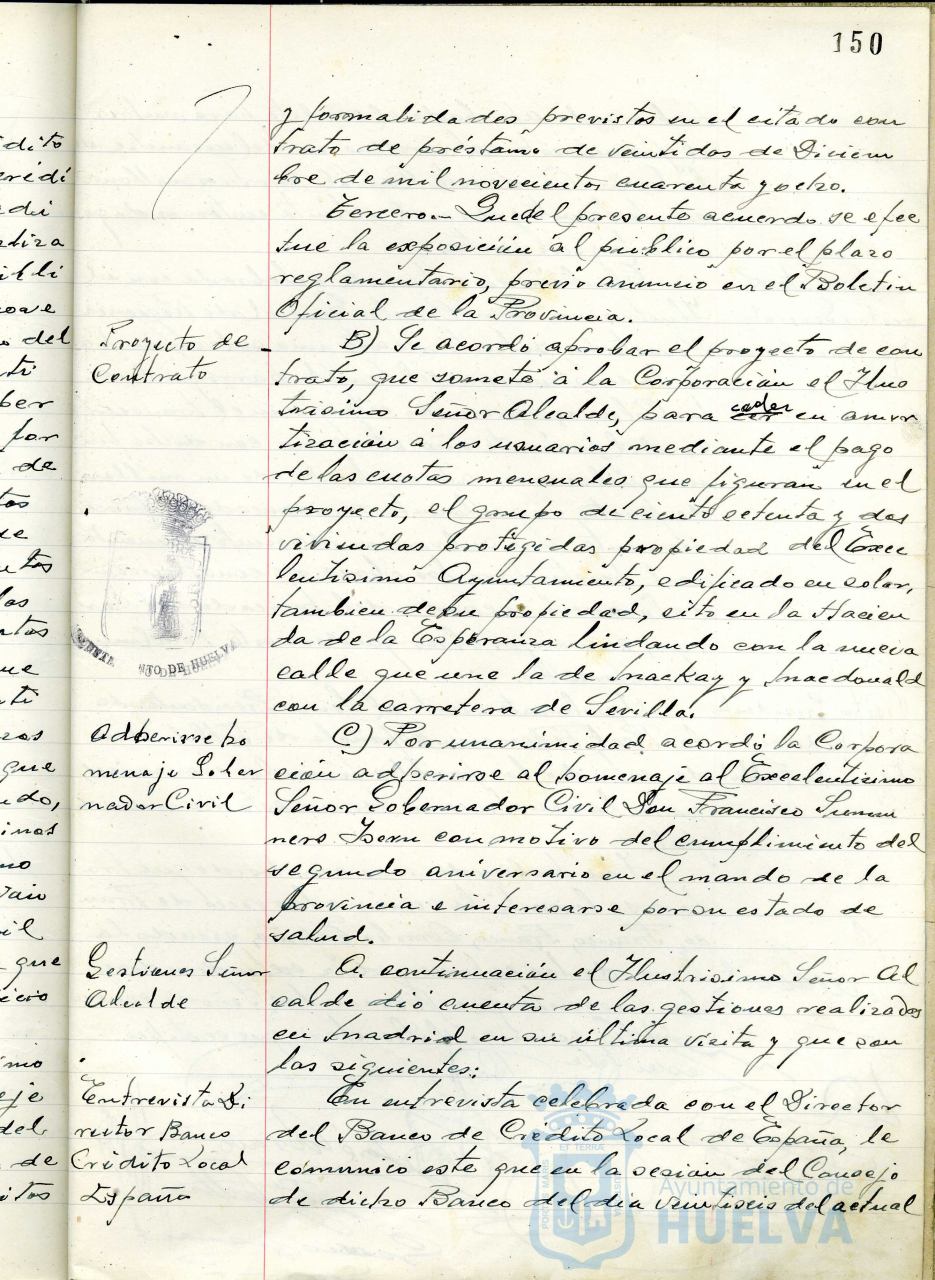 150
y formalidades previstos en el citado con
trato de préstamo de veintidos de Diciem
bre de mil novecientos cuarenta y ocho.
Tercero.- Que del presente acuerdo se efec
tue la exposición al público por el plazo
reglamentario, previo anuncio en el Boletin
Oficial de la Provincia.
Proyecto de
Contrato
B) Se acordó aprobar el proyecto de con
trato, que someta á la Corporación el Ilus
trisimo Señor Alcalde, para ceder en amor
tización á los usuarios mediante el pago
de las cuotas mensuales que figuran en el
proyecto, el grupo de ciento setenta y dos
viviendas protegidas propiedad del Exce
lentisimo Ayuntamiento, edificado en solar,
tambien de su propiedad, sito en la Hacien
da de la Esperanza lindando con la nueva
calle que une la de Mackay y Macdonald
con la carretera de Sevilla.
AYUNTAMIENTO DE HUELVA
Adherirse ho
menaje Gober
nador Civil
C) Por unanimidad acordó la Corpora
ción adherirse al homenaje al Excelentisimo
Señor Gobernador Civil Don Francisco Summ
ners Isern con motivo del cumplimiento del
segundo aniversario en el mando de la
provincia e interesarse por su estado de
salud.
Gestiones Señor
Alcalde
A continuación el Ilustrisimo Señor Al
calde dió cuenta de las gestiones realizadas
en Madrid en su última visita y que son
las siguientes:
Entrevista Di
rector Banco
Crédito Local
España
En entrevista celebrada con el Director
del Banco de Credito Local de España, le
comunicó este que en la sesión del Consejo
de dicho Banco del dia veintiseis del actual
Ayuntamiento de
HUELVA